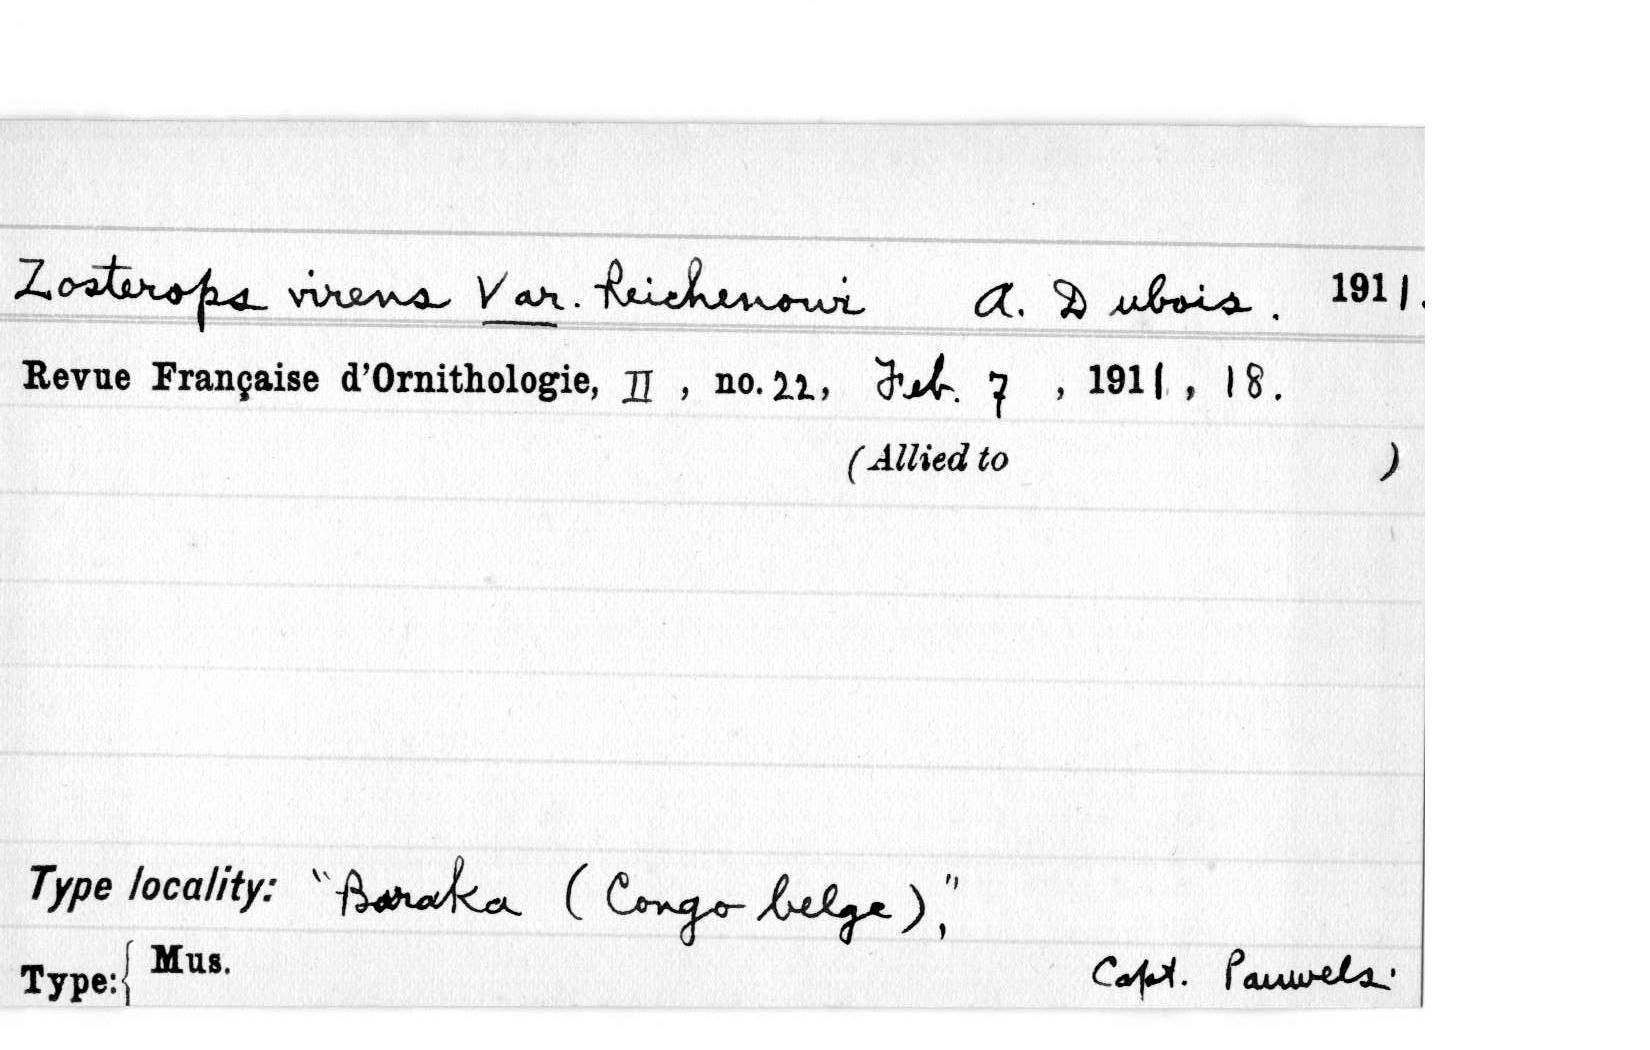 Zosterops virens Var. Reichenowi A. Dubois. 1911.
Revue Française d'Ornithologie, II, no. 22, Feb. 7, 1911, 18.
(Allied to )
Type locality: "Baraka (Congo belge),"
Type: { Mus. Capt. Pauwels.